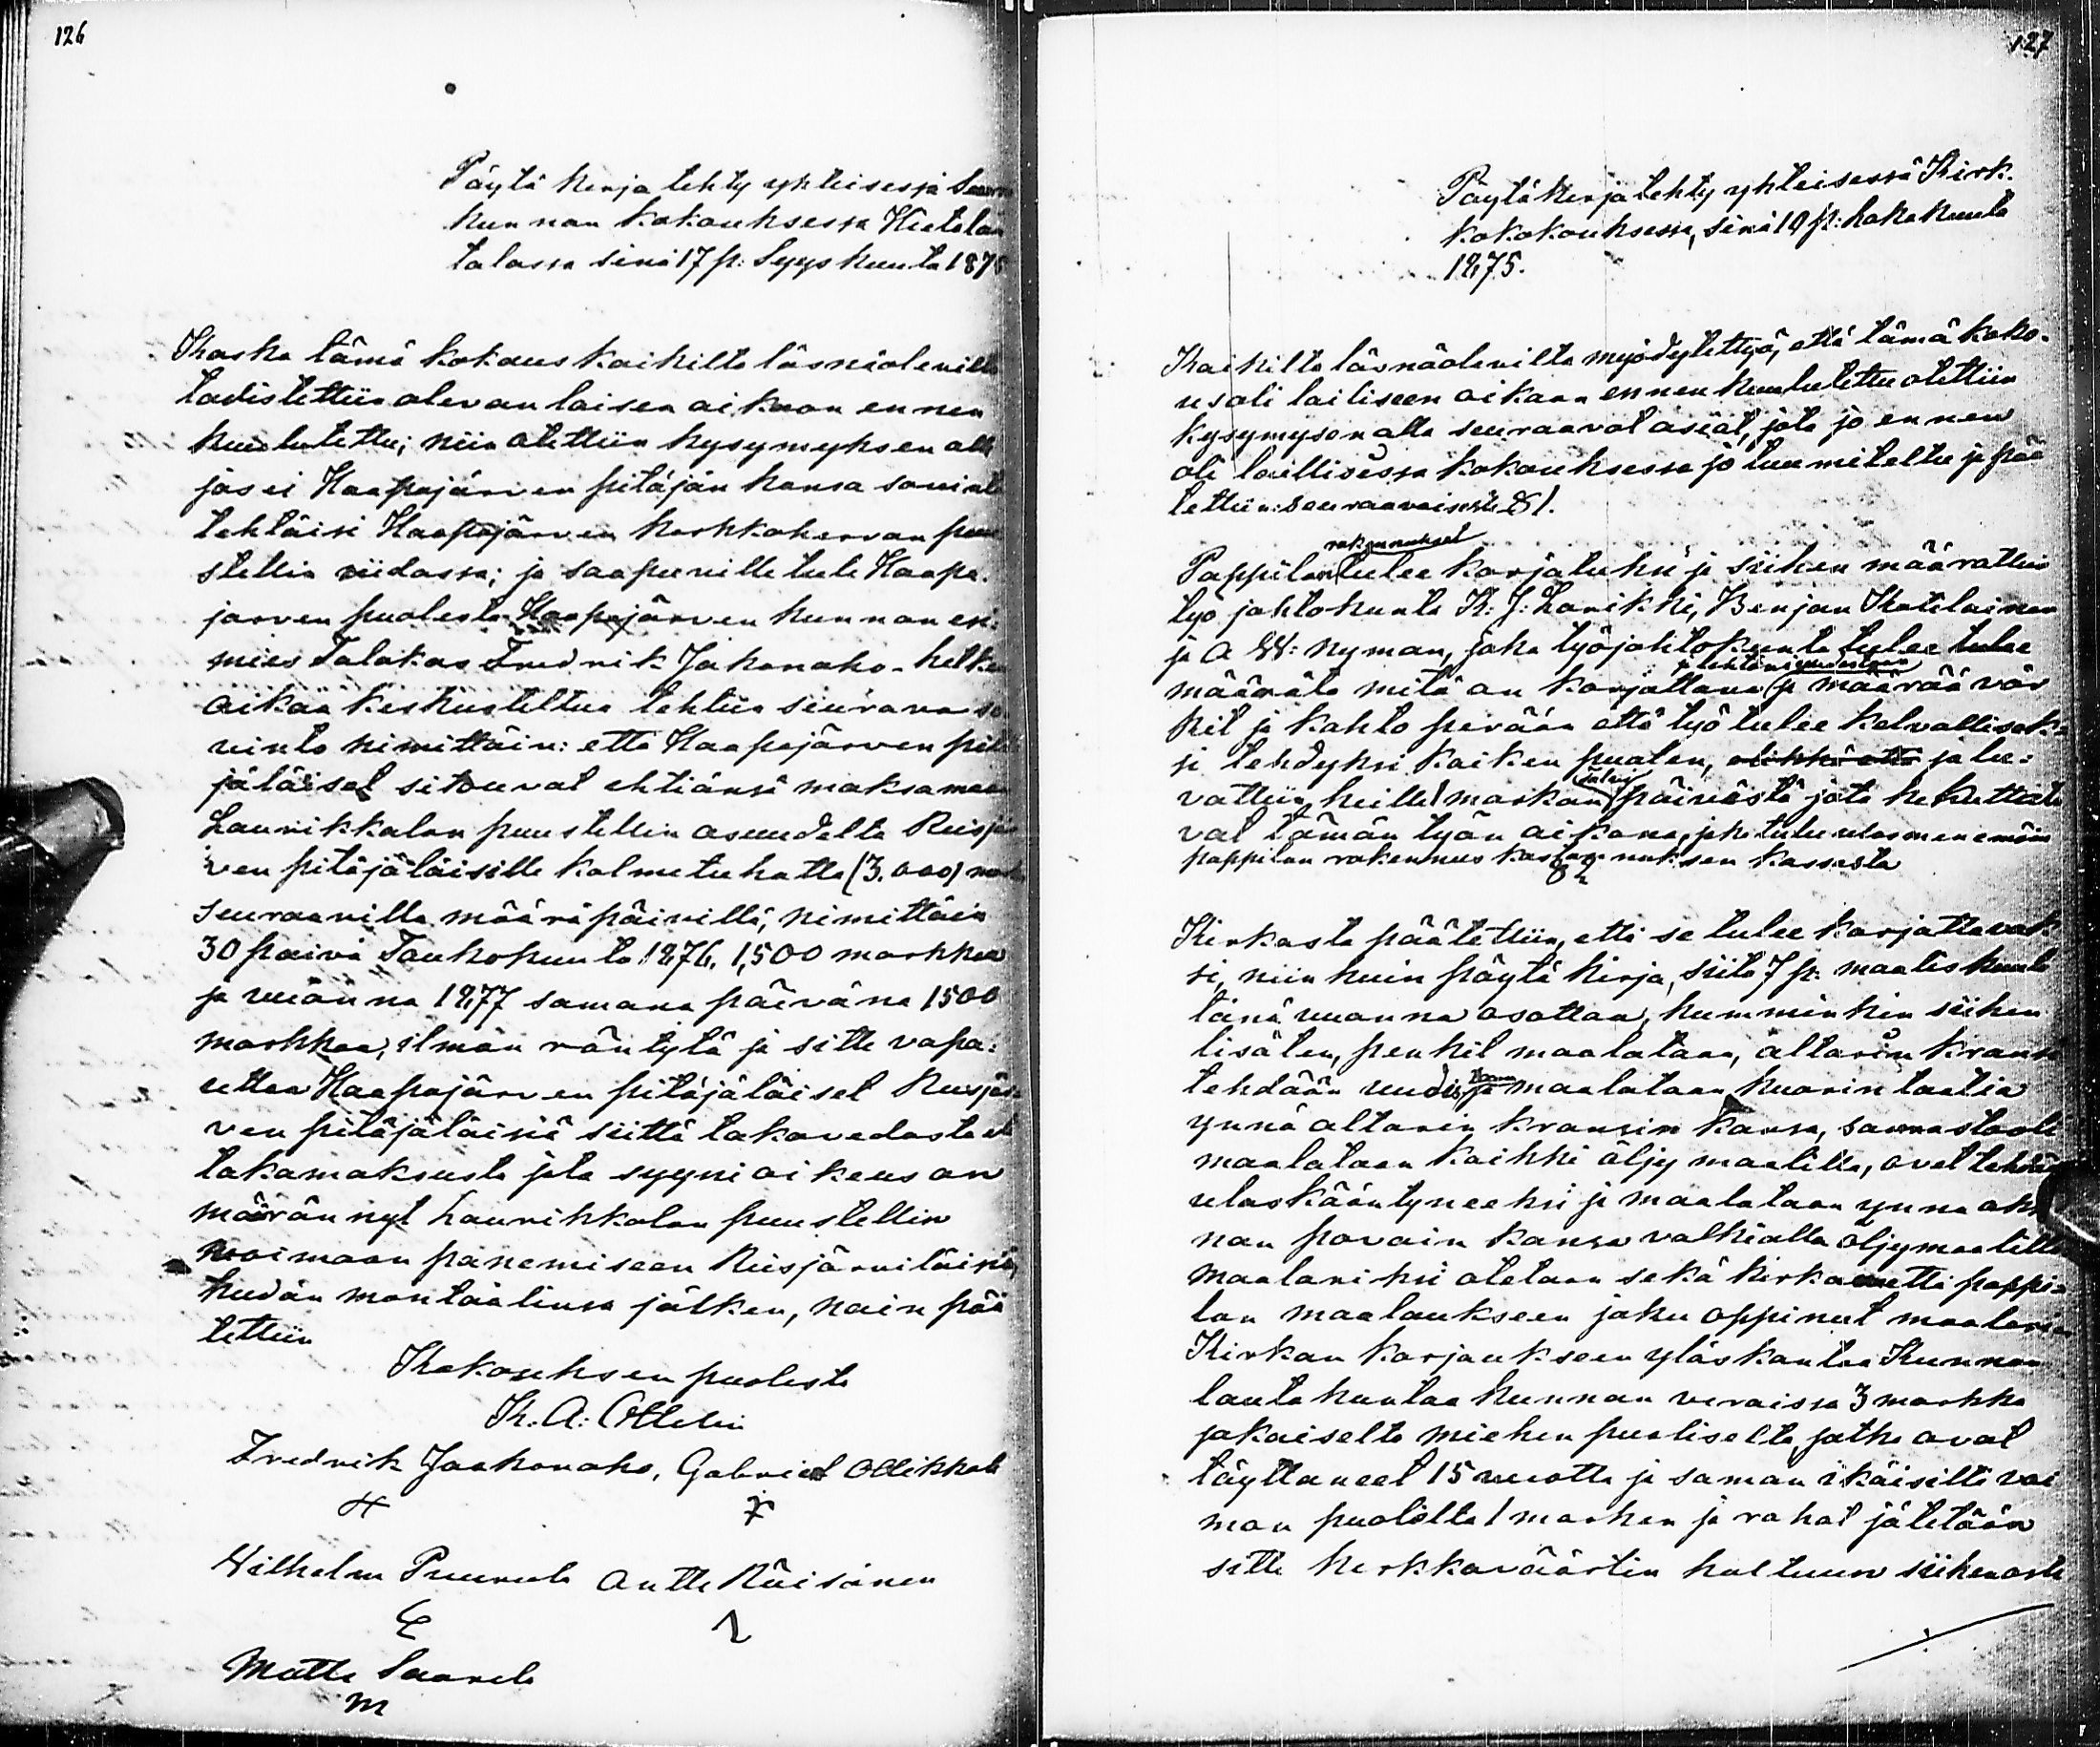 126
Päytä kirja tehty yhteisessä Seura
kunnan kokouksessa Kietalan
talossa sinä 17 p: Syyskuuta 1875
Koska tämä kokous kaikilta läsnäolevilta
todistettiin olevan laisen aikaan ennen
kuulutettu; niin otettiin kysymyksen alle
jos ei Haapajärven pitäjän kansa sovinto
tehtäisi Haapajärven kirkkoherran puu
stellin riidassa; ja saapuville tule Haapa-
jarven puolesta Haapajärven kunnan esi-
mies Talokas Fredrik Jakonaho - hetken
aikaa keskusteltua tehtiin seurava so
vinto nimittäin: että Haapajärven pitä
jäläiset sitouvat ehtiänsä maksamaan
Laurikkalan puustellin asuudelta Reisjär
ven pitäjäläisille kolmetuhatta (3.000) markka
seuraavilla määräpäivillä, nimittäin
30 paivä Toukokuuta 1876, 1,500 markkaa
ja vuonna 1877 samana päivänä 1500
markkaa, ilman räntytä ja sitte vapa-
uttaa Haapajärven pitäjäläiset Reisjär-
ven pitäjäläisiä siittä takavedosta eli
takamaksusta jota syyni oikeus on
määrännyt Laurikkalan puustellin
woimaan panemiseen Reisjärviläisiä,
kuudän mantaalinsa jälken, näin pää
tettiin
Kokouksen puolesta
K. A: Ottelin
Fredrik Jaakonaho, Gabriel Ollikkala
Wilhelm Puurula Antti Räisänen
Matti Saarela
M
127
Päytäkirja tehty yhteisessä Kirk-
kokokouksessa, sinä 10 p: lokakuuta
1875.
Kaikilta läsnäolevilta myödytettyä, että tämä koko-
us oli lailiseen aikaan ennen kuulutettu otettiin
kysymyson alla seuraavat asiat, jota jo ennen
oli laillisessa kokouksessa jo tuumiteltu ja pää
tettiin: seuraavaisesti § 1.
rakennukset
Pappilan tulee korjatuksi ja siihen määrattiin
tyo johtokunta K: J: Lorikki, Benjam Kotilainen
ja A W: Nyman, joka työjohtokunta tulee tulee
ja tehtävä uudestaan
määrätä mitä on korjattava ja määrää vär
kit ja kahto perään että työ tulee kelvollisek-
si tehdyksi kaiken puolen, ja lu-
vattiin heille 1 markan päivästä jota he kuttele
vat tämän työn aikana, joka tulee ulosmenemään
pappilan rakennus kustannuksen kassasta
§ 2
Kirkosta päätettiin, että se tulee korjattavak
si, niin kuin päytä kirja, siitä 7 p. maaliskuuta
tänä vuonna osottaa, kumminkin siihen
lisäten, penkit maalataan, altarin kransi
tehdään uudis ja maalataan kuorin laatia
ynnä altarin kransin kansa, saarnastooli
maalataan kaikki öljy maalilla, ovet tehdään
uloskääntyneeksi ja maalataan ynnä akk
nan povain kansa valkialla öljymaalilla
maalariksi otetaan sekä kirko että pappi-
lan maalaukseen joku oppinut maalari
Kirkon korjaukseen yläskantaa Kunnan
lautakuntaa kunnan veraissa 3 markka
jokaiselta miehen puoliselta jotka ovat
täyttaneet 15 vuotta ja saman ikäisiltä vai
mon puolilta 1 markan ja rahat jätetään
sitte kirkkoväärtin haltuun siihen asti